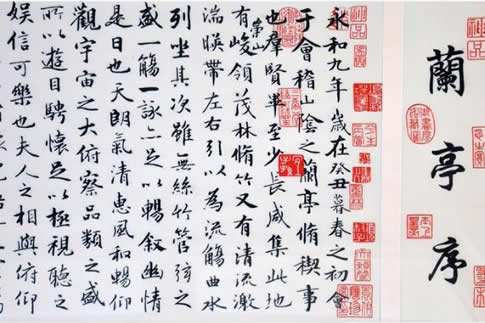 蘭亭序
永和九年歲在癸丑暮春之初會
于會稽山陰之蘭亭脩稧事
也群賢畢至少長咸集此地
崇山
有峻領茂林脩竹又有清流激
湍暎帶左右引以為流觴曲水
列坐其次雖無絲竹管弦之
盛一觴一詠亦足以暢敘幽情
是日也天朗氣清惠風和暢仰
觀宇宙之大俯察品類之盛
所以遊目騁懷足以極視聽之
娛信可樂也夫人之相與俯仰